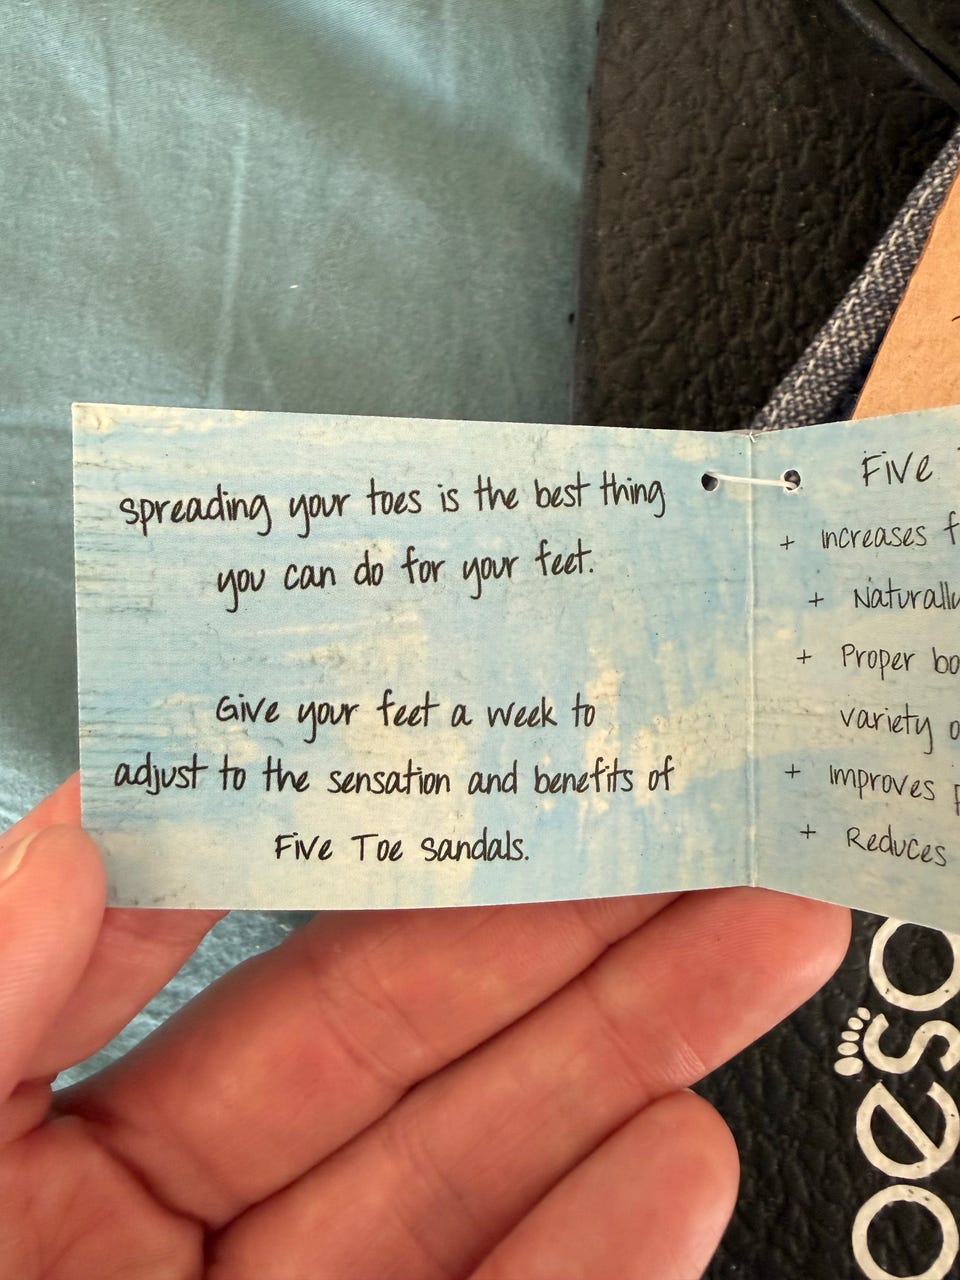 spreading your toes is the best thing
you can do for your feet.
Give your feet a week to
adjust to the sensation and benefits of
Five Toe Sandals.
Five
+ increases
+ Naturally
+ Proper
variety
+ improves
+ Reduces